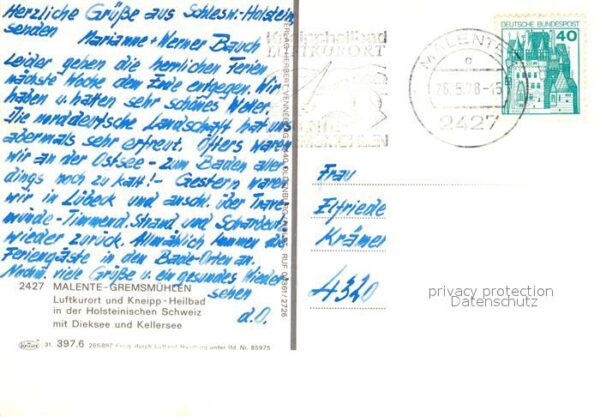 Herzliche Grüße aus Schlesw.-Holstein
senden
Marianne + Werner Bauch
Leider gehen die herrlichen Ferien
nächste Woche dem Ende entgegen. Wir
haben u. hatten sehr schönes Wetter.
Die norddeutsche Landschaft hat uns
abermals sehr erfreut. Öfters waren
wir an der Ostsee - zum Baden aller-
dings noch zu kalt! - Gestern waren
wir in Lübeck und anschl. über Trave-
münde - Timmend. Strand und Scharbeutz
wieder zurück. Allmählich kommen die
Feriengäste in den Bade-Orten an.
Nochm. viele Grüße u. ein gesundes Wieder-
sehen
d.O.
2427 MALENTE-GREMSMÜHLEN
Luftkurort und Kneipp-Heilbad
in der Holsteinischen Schweiz
mit Dieksee und Kellersee
31. 397.6
Kneippheilbad
LUFTKURORT
MALENTE
26.5.78-15
2427
DEUTSCHE BUNDESPOST
40
Frau
Elfriede
Krämer
4320
privacy protection
Datenschutz